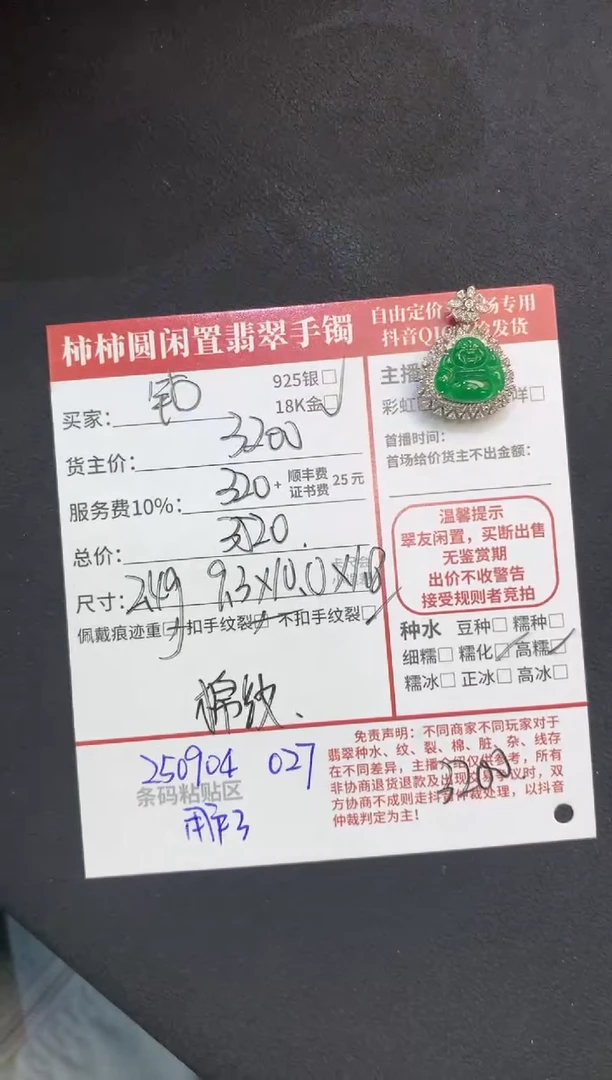 柿柿圆闲置翡翠手镯
自由定价 场专用
抖音Q1 发货
买家：
925银□
18K金□
货主价：3200
服务费10%：320 + 顺丰费 证书费 25元
总价：3520.
尺寸：2.49g 9.3×10.0×1.8
佩戴痕迹重□ 扣手纹裂 不扣手纹裂□
棉纹、
主播
彩虹 咩□
首播时间：
首场给价货主不出金额：
温馨提示
翠友闲置，买断出售
无鉴赏期
出价不收警告
接受规则者竞拍
种水 豆种□ 糯种□
细糯□ 糯化□ 高糯□
糯冰□ 正冰□ 高冰□
250904 027
条码粘贴区
免责声明：不同商家不同玩家对于
翡翠种水、纹、裂、棉、脏、杂、线存
在不同差异，主播介绍仅供参考，所有
非协商退货退款及出现交易争议时，双
方协商不成则走抖音仲裁处理，以抖音
仲裁判定为主！
3200